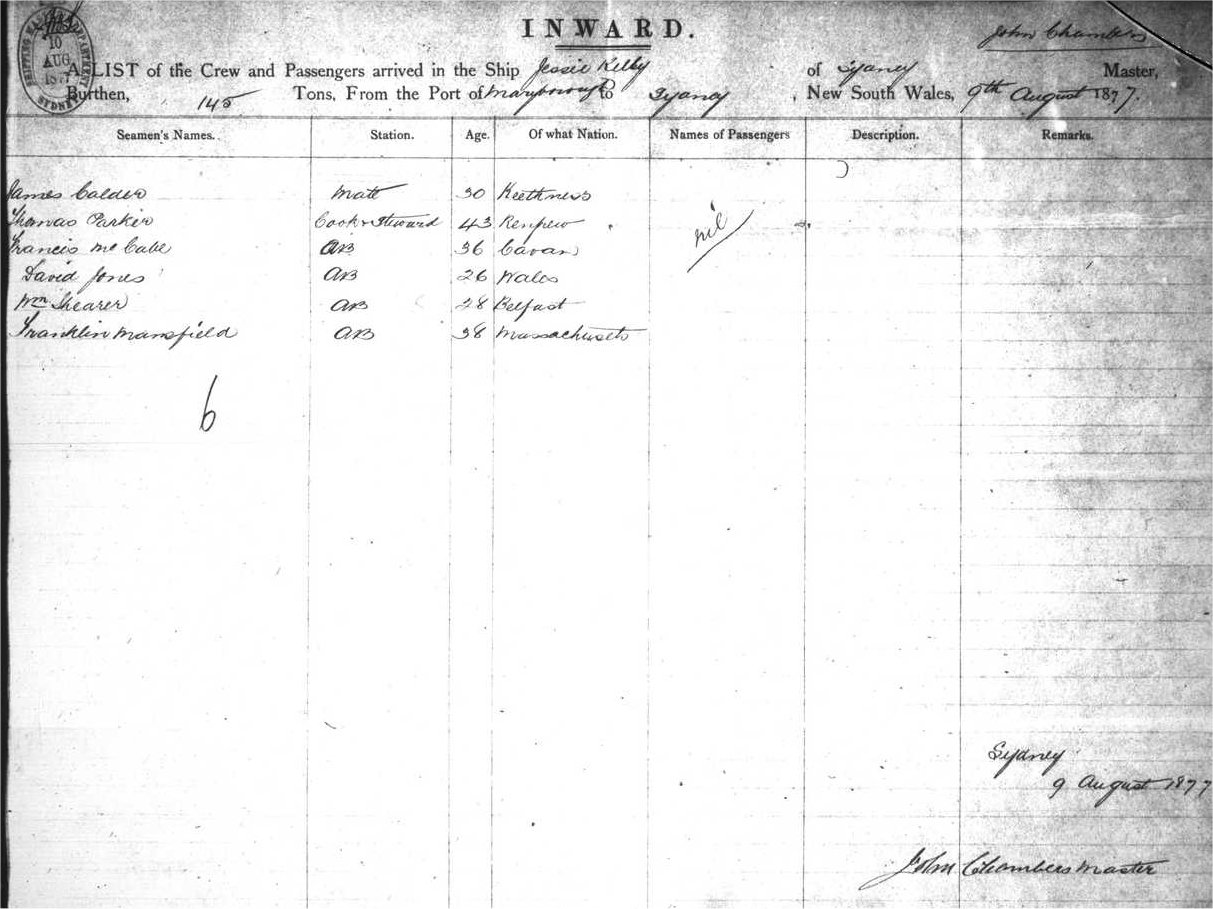 INWARD.
John Chambers
SHIPPING MASTER'S DEPARTMENT
10
AUG
1877
SYDNEY
A LIST of the Crew and Passengers arrived in the Ship Jessie Kelly of Sydney Master,
Burthen, 145 Tons, From the Port of Maryborough to Sydney , New South Wales, 9th August 1877.
Seamen's Names. Station. Age. Of what Nation. Names of Passengers Description. Remarks.
James Calder Mate 30 Keethness
Thomas Parker Cook & Steward 43 Renfrew nil
Francis McCabe AB 36 Cavan
David Jones AB 26 Wales
Wm Shearer AB 28 Belfast
Franklin Mansfield AB 38 Massachusets
6
Sydney
9 August 1877
John Chambers Master